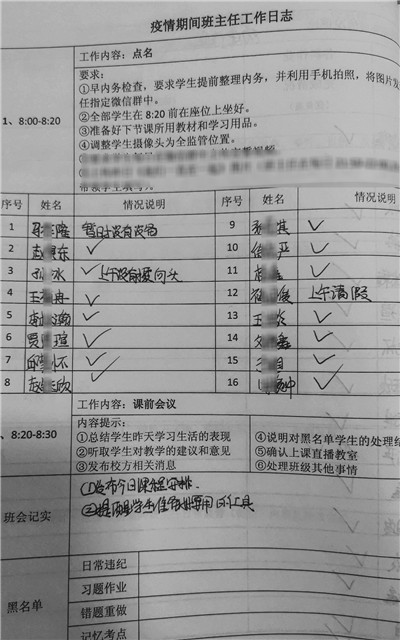 疫情期间班主任工作日志
工作内容：点名
1、8:00-8:20
要求：
①早内务检查，要求学生提前整理内务，并利用手机拍照，将图片发
任指定微信群中。
②全部学生在 8:20 前在座位上坐好。
③准备好下节课所用教材和学习用品。
④调整学生摄像头为全监管位置。
序号 姓名 情况说明 序号 姓名 情况说明
1 隆 暂时没有设备 9 淇 ✓
2 东 ✓ 10 严 ✓
3 水 ✓ 上午没有 11 ✓
4 王 冉 ✓ 12 俊 上午请假
5 瀚 ✓ 13 王 ✓
6 贾 瑄 ✓ 14 鑫 ✓
7 邱 怀 ✓ 15 ✓
8 赵 欣 ✓ 16 中 ✓
工作内容：课前会议
、8:20-8:30
内容提示：
①总结学生昨天学习生活的表现 ④说明对黑名单学生的处理结
②听取学生对教学的建议和意见 ⑤确认上课直播教室
③发布校方相关消息 ⑥处理班级其他事情
班会记实
①发布今日课程安排.
②提醒学生准备好要用的工具
黑名单
日常违纪
习题作业
错题重做
记忆考点